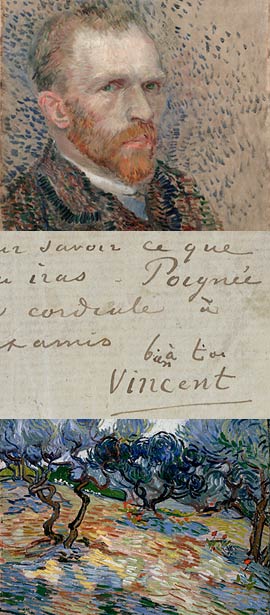 ur savoir ce que
u iras – Poignée
cordiale à
amis
b an à toi
Vincent